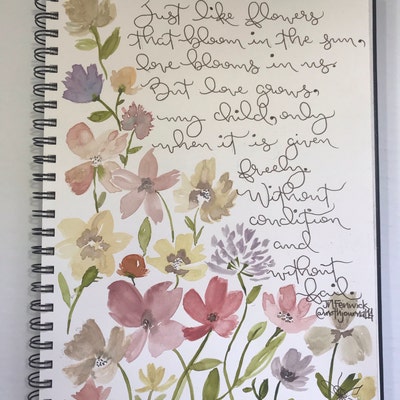 Just like flowers
that bloom in the sun,
love blooms in us.
But love grows,
my child, only
when it is given
freely.
Without
condition
and
without
fail.